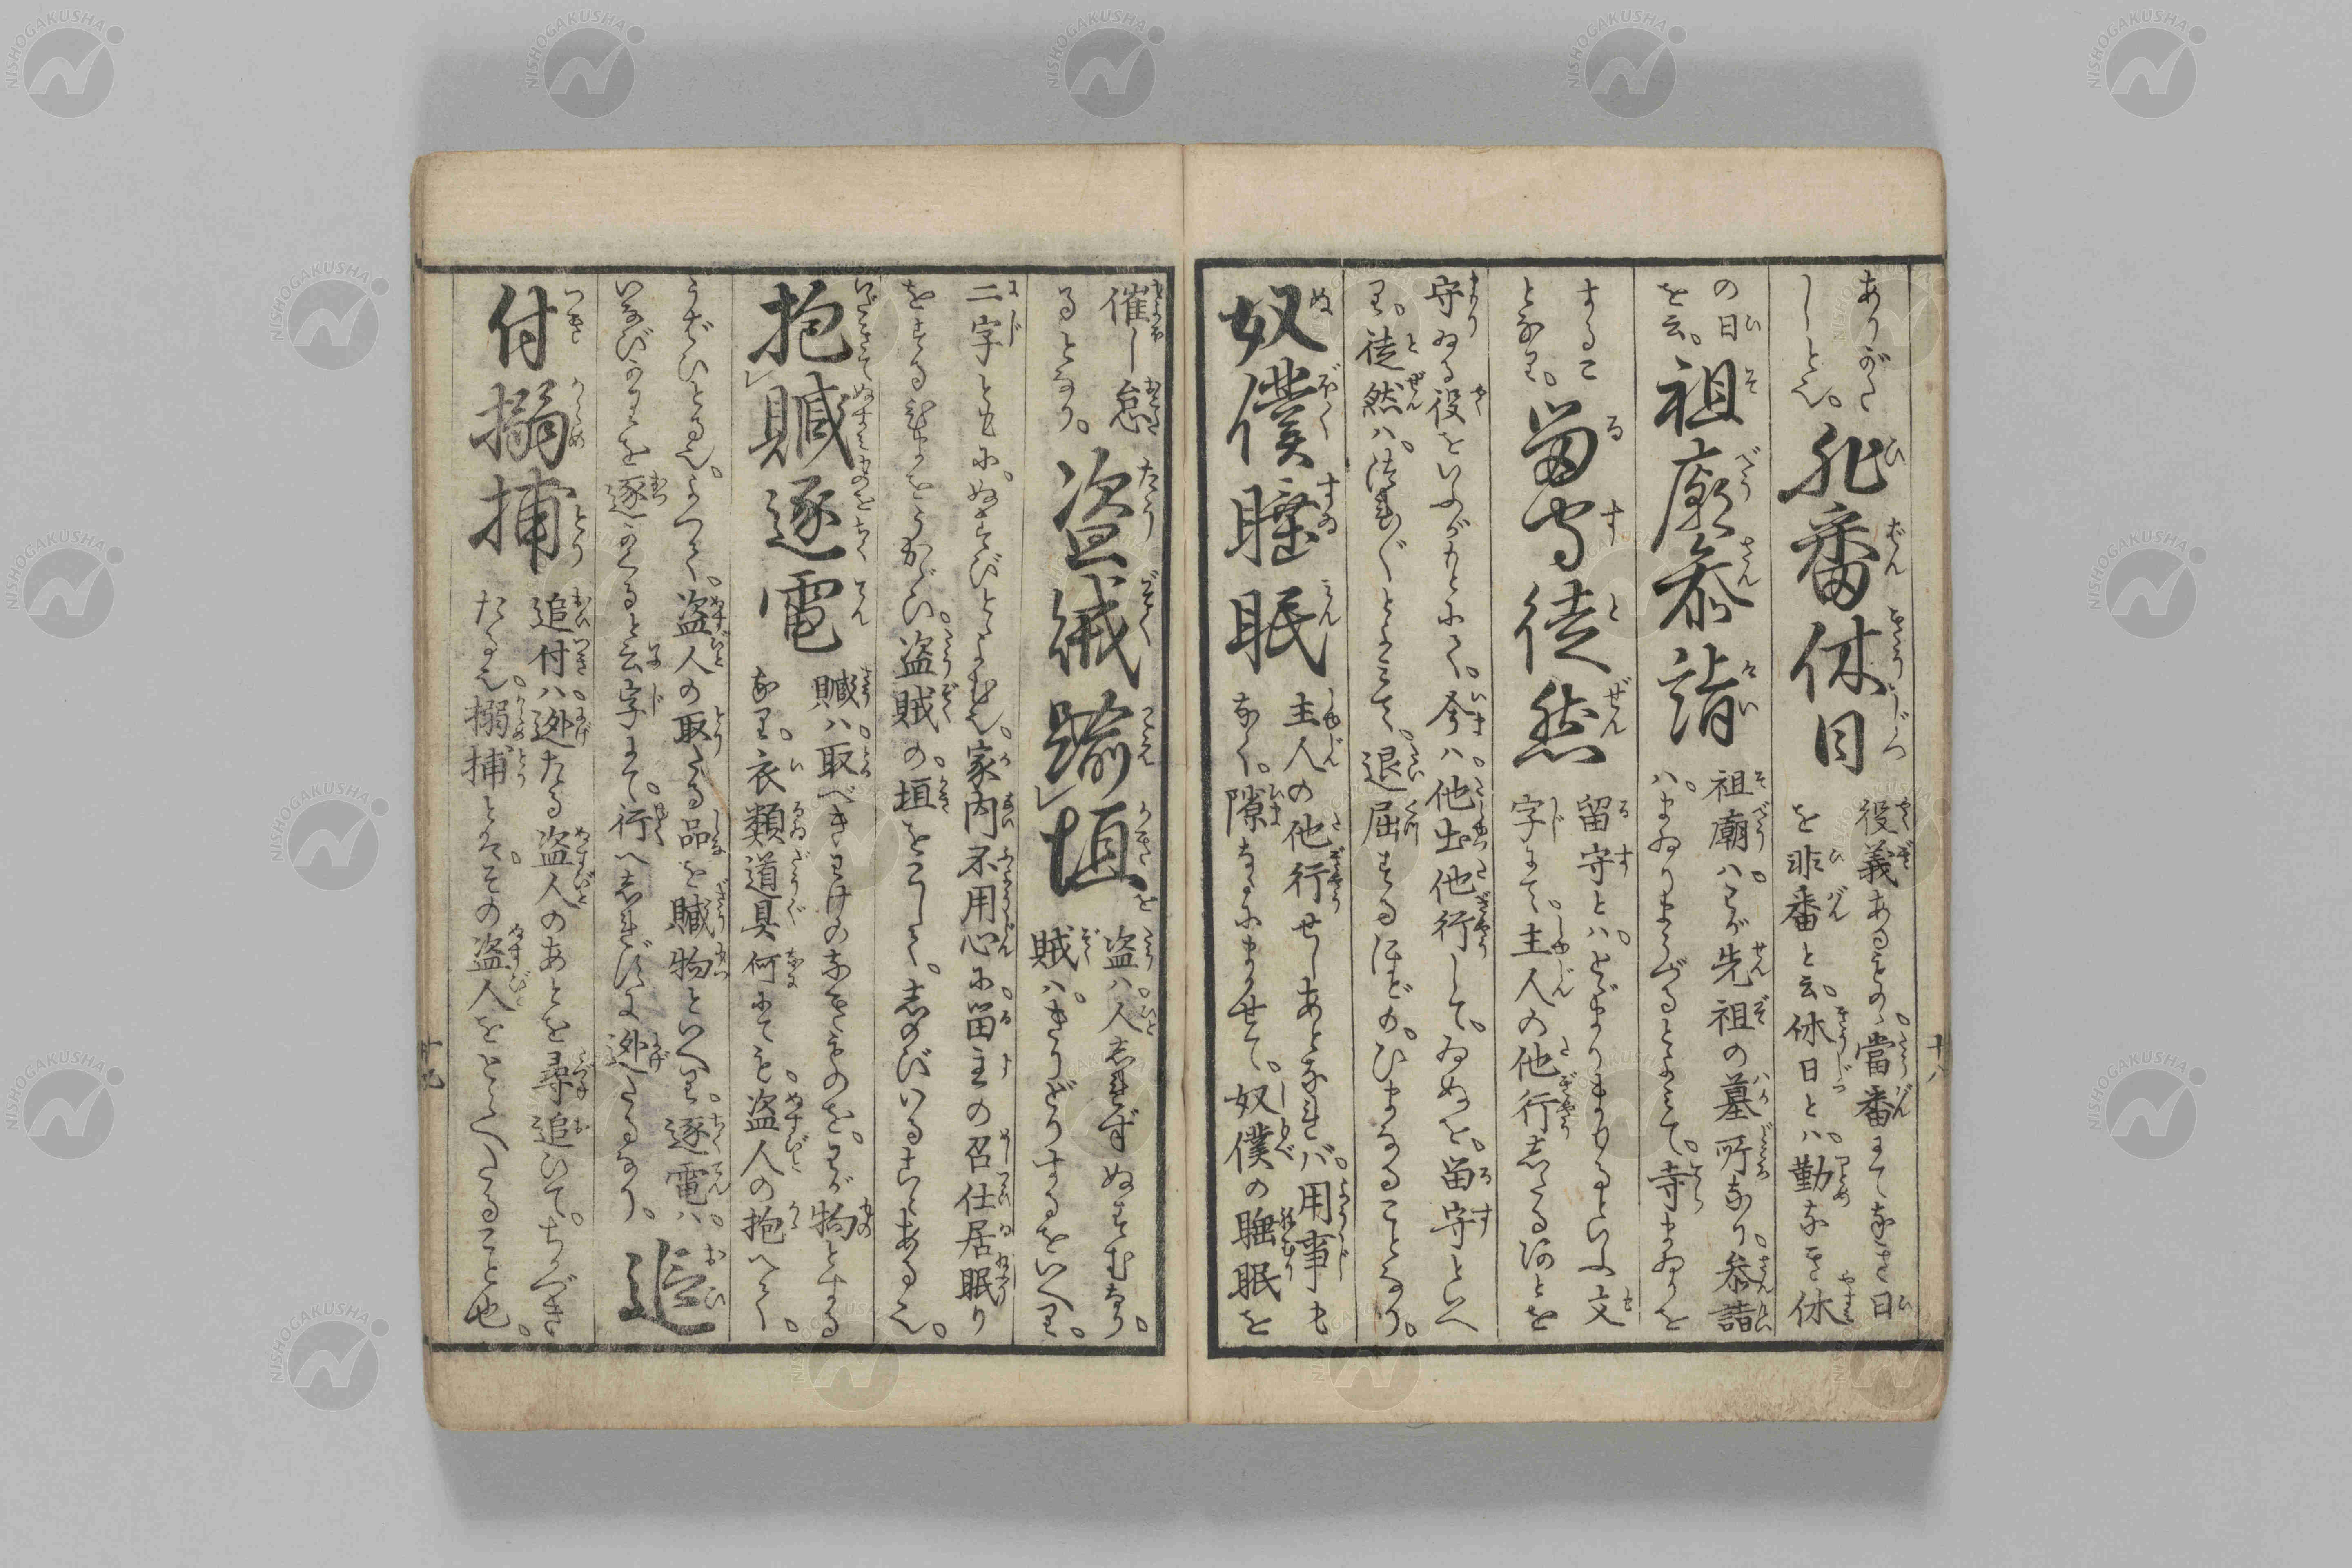 ありがた
しとえ。
非番休日
役義あるもの。當番にてなき日
を非番と云。休日とハ。勤なき休
の日
を云。
祖廟参詣
祖廟ハ。わが先祖の墓所なり。参詣
ハ。まゐりまうづるとよミて。寺まゐりを
するこ
となり。
留守徒然
留守とハ。とどまりまもるといふ文
字にて。主人の他行したる跡とを
守ゐる役をいふがもとにて。今ハ。他出他行して。ゐぬを。留守といへ
り。徒然ハ。つれ〴〵とよミて。退屈するほどの。ひまなることなり。
奴僕睡眠
主人の他行せしあとなれバ。用事も
なく。隙なるにまかせて。奴僕の睡眠を
催し怠
るとなり。
盗賊踰垣を
盗ハ。人しれずぬすむなり。
賊ハ。きりどりするをいへり。
二字ともに。ぬすびととよむ也。家内不用心に。留主の召仕居眠り
をするひまをうかゞひ。盗賊の。垣をこして。しのびいることあるえ。
抱贓逐電
贓ハ。取べきわけのなきものを。わが物とする
なり。衣類道具何にても。盗人の抱へて。
うばひとる也。よつて。盗人の取たる品を贓物といへり。逐電ハ。
いなびかりを逐かくると云字にて。行へしれずに迯たるなり。
追
付搦捕
追付ハ。迯たる盗人のあとを尋追いて。ちかづき
たる也。搦捕とは。その盗人をとらへたること也。
十八
十九
NISHOGAKUSHA